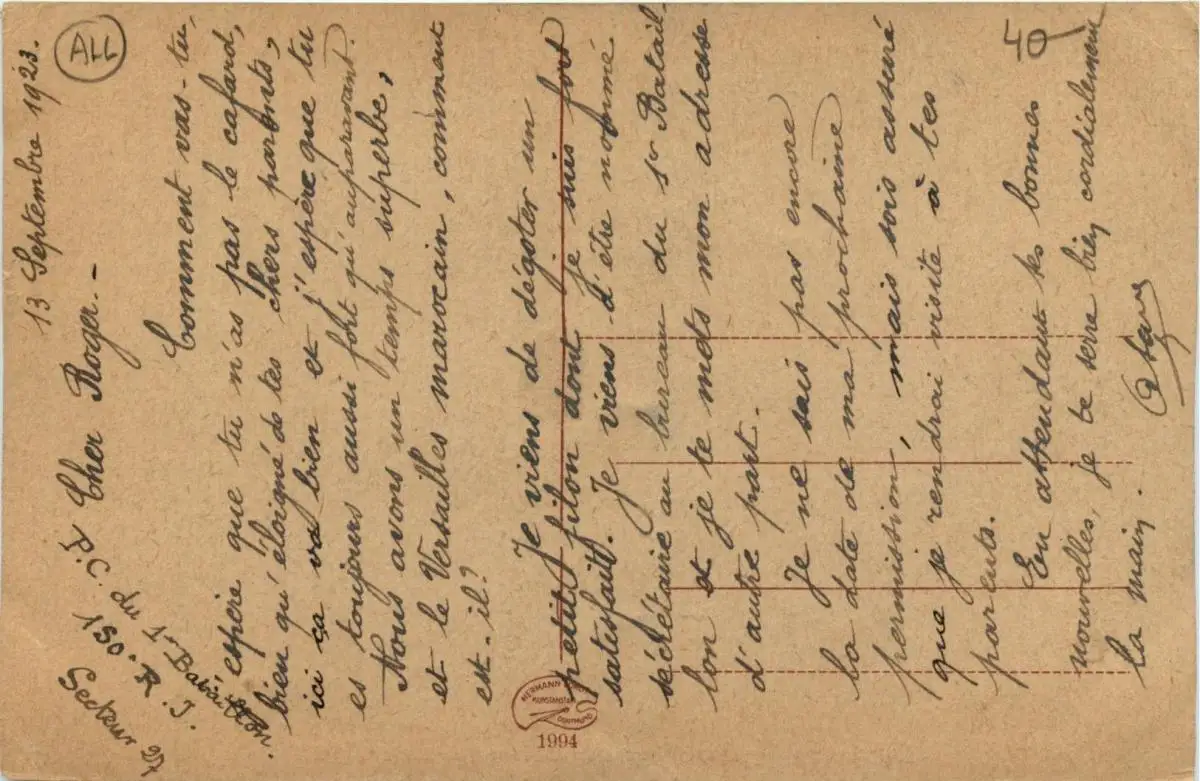 13 Septembre 1923.
ALL
40
P.C. du 1er Bataillon.
150e R.I.
Secteur 97
Cher Roger. -
Comment vas-tu,
j'espère que tu n'as pas le cafard,
bien qu'éloigné de tes chers parents,
ici ça va bien et j'espère que tu
es toujours aussi fort qu'auparavant.
Nous avons un temps superbe,
et le Versailles marocain, comment
est-il?
Je viens de dégoter un
petit filon dont je suis fort
satisfait. Je viens d'être nommé
secrétaire au bureau du 1er Batail-
lon et je te mets mon adresse
d'autre part.
Je ne sais pas encore
la date de ma prochaine
permission, mais sois assuré
que je rendrai visite à tes
parents.
En attendant tes bonnes
nouvelles, je te serre bien cordialement
la main.
HERMANN
KUNSTANSTALT
DORTMUND
1994